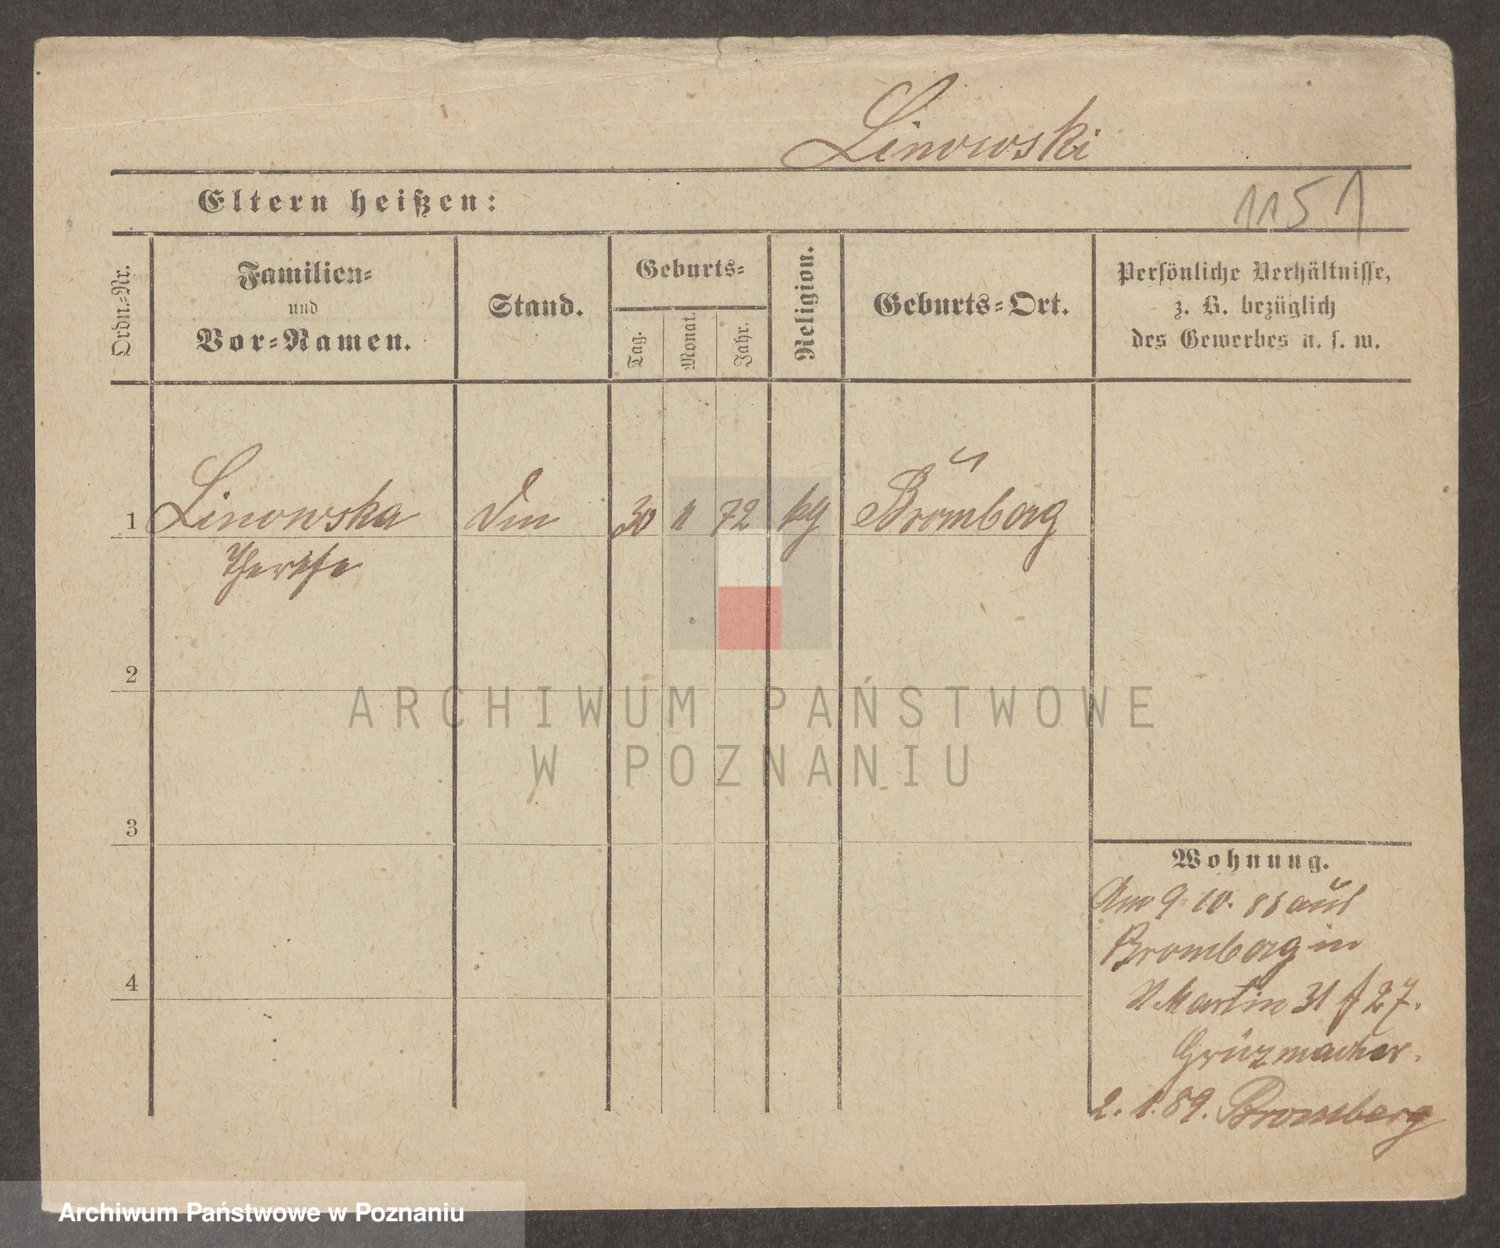 Linowski
Eltern heißen:
1151
Ordn.-Nr.
Familien-
und
Vor-Namen.
Stand.
Geburts-
Tag.
Monat.
Jahr.
Religion.
Geburts-Ort.
Persönliche Verhältnisse,
z. B. bezüglich
des Gewerbes u. s. w.
1 Linowska 30 11 72 Bromberg
2
ARCHIWUM PAŃSTWOWE
W POZNANIU
3
Wohnung.
Am 9. 10. 88 aus
Bromberg in
Martin 31 27.
4
Grüzmacher.
2. 1. 89. Bromberg
Archiwum Państwowe w Poznaniu